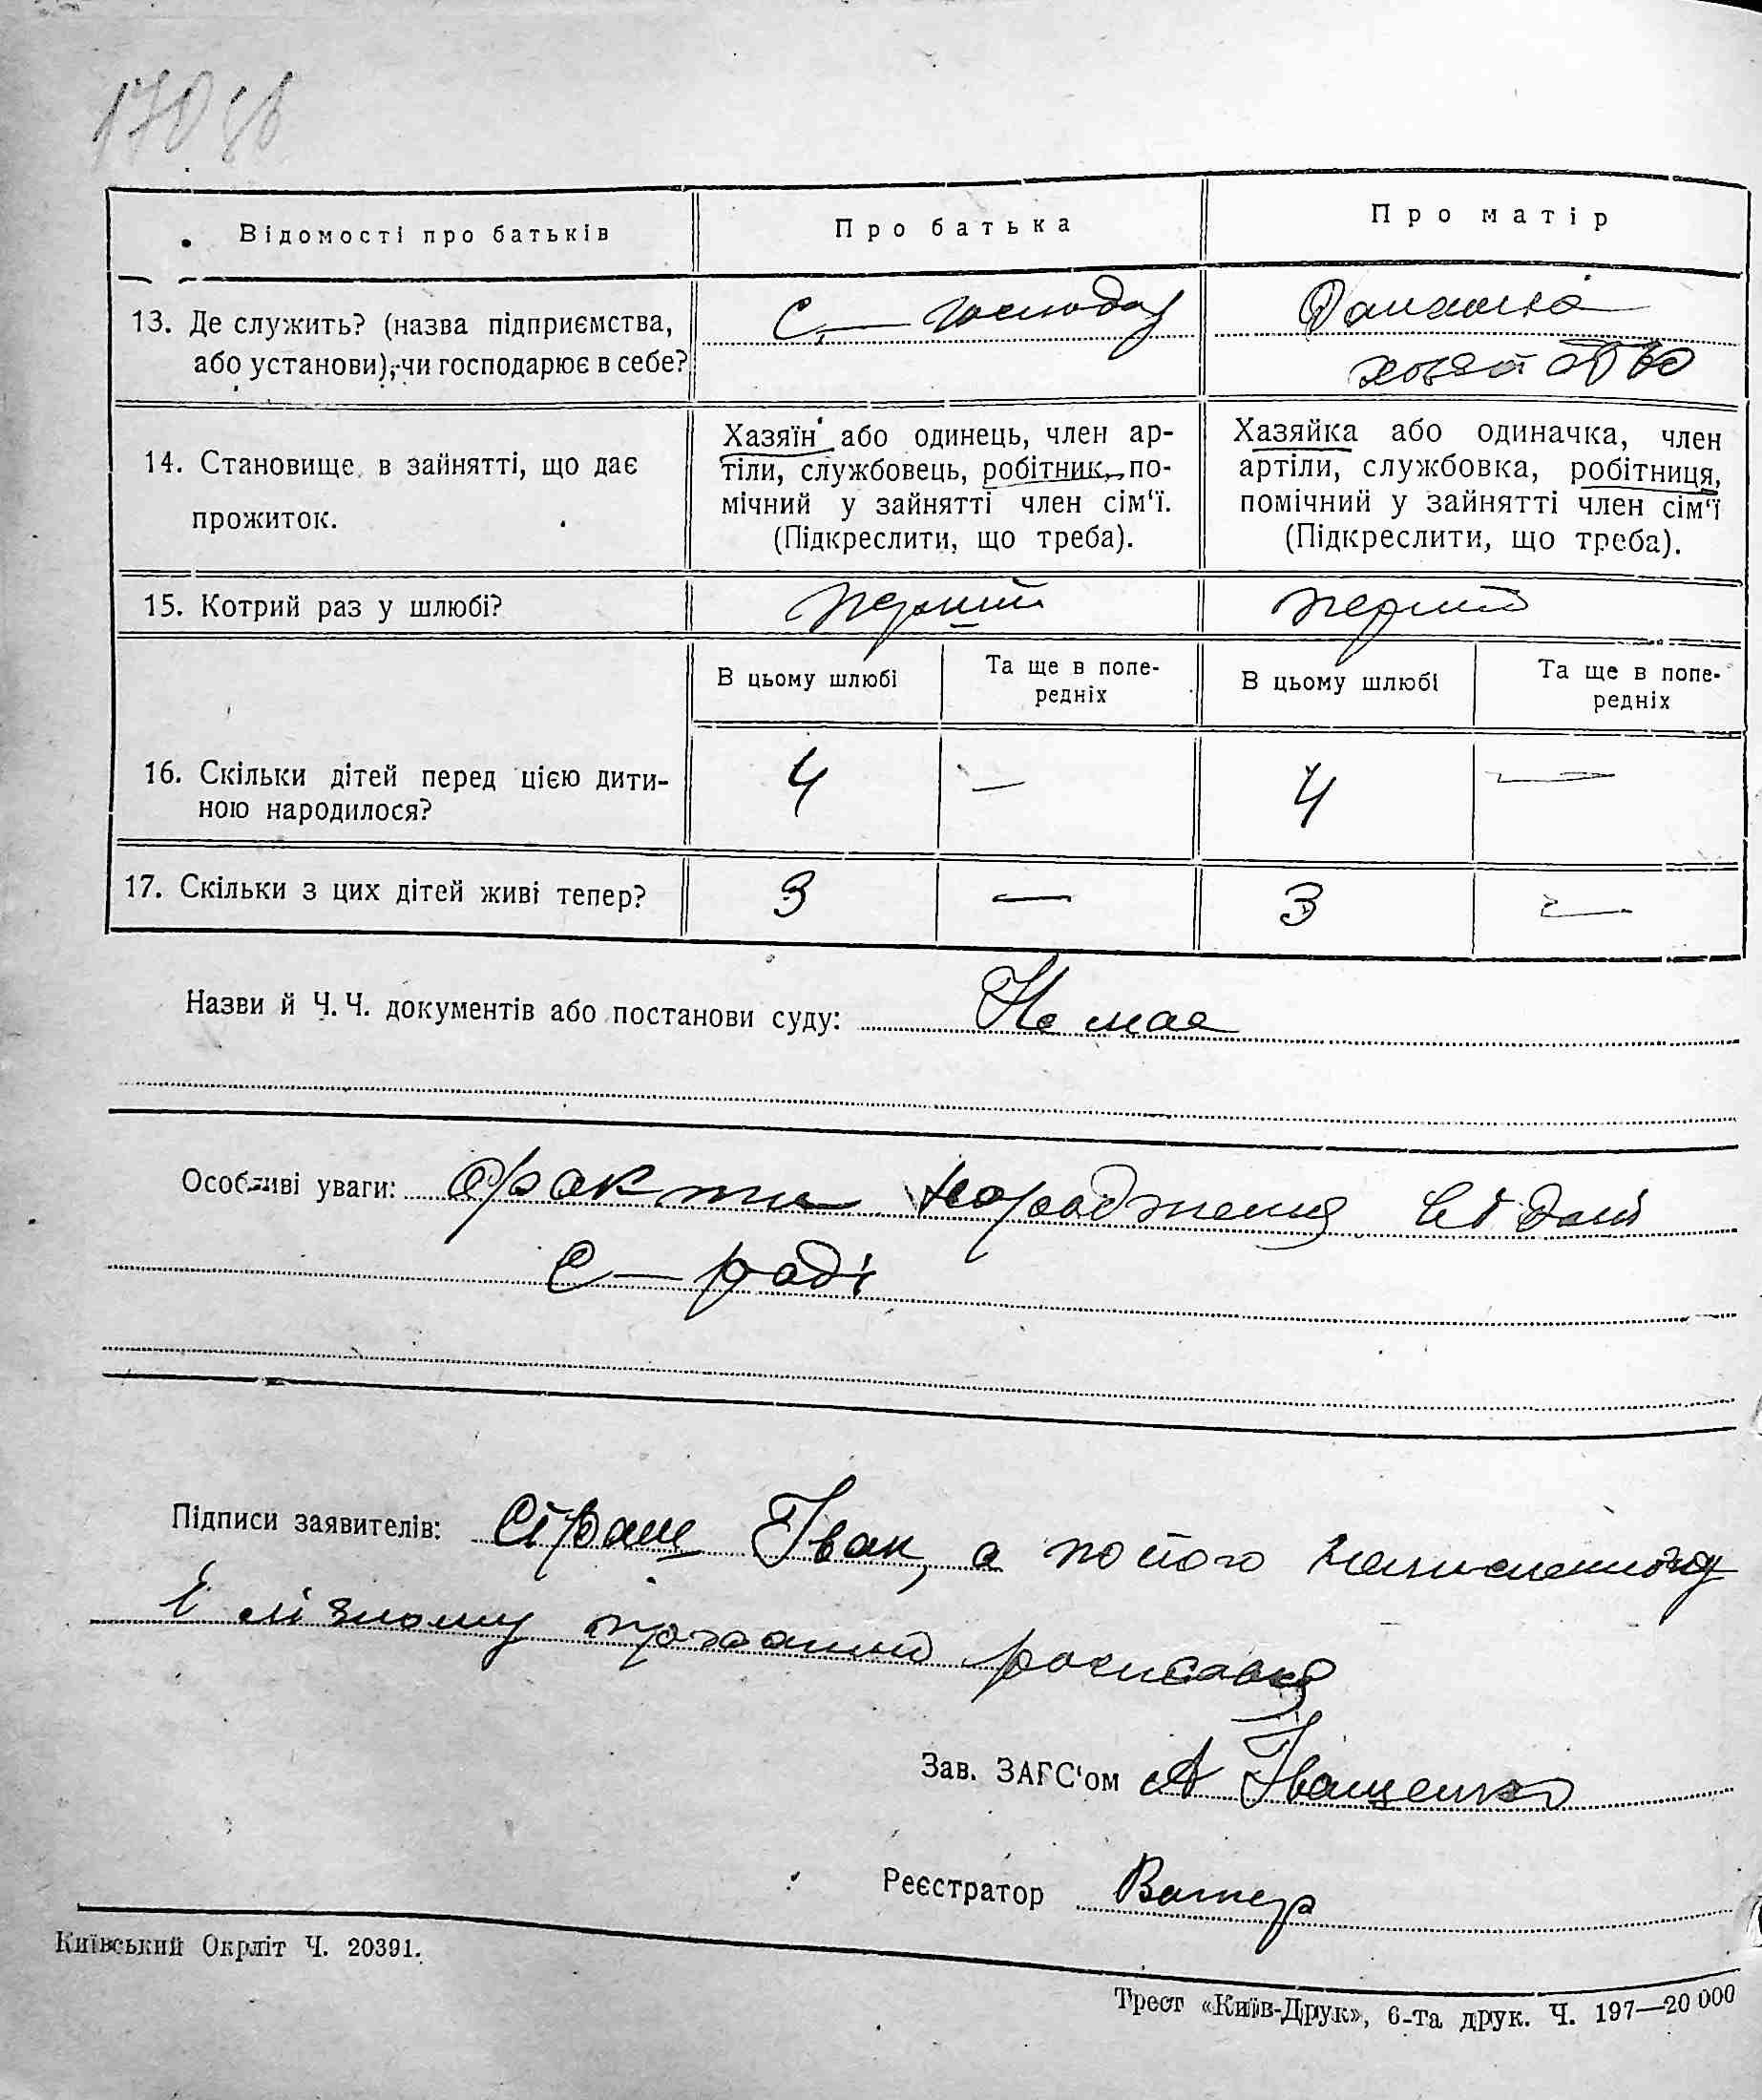 170 зв
Відомості про батьків
Про батька
Про матір
13. Де служить? (назва підприємства,
або установи), чи господарює в себе?
С.— господар
Домашнє
хозяйство
14. Становище в зайнятті, що дає
прожиток.
Хазяїн або одинець, член ар-
тіли, службовець, робітник, по-
мічний у зайнятті член сім'ї.
(Підкреслити, що треба).
Хазяйка або одиначка, член
артіли, службовка, робітниця,
помічний у зайнятті член сім'ї
(Підкреслити, що треба).
15. Котрий раз у шлюбі?
перший
перший
В цьому шлюбі
Та ще в попе-
редніх
В цьому шлюбі
Та ще в попе-
редніх
16. Скільки дітей перед цією дити-
ною народилося?
4 — 4 —
17. Скільки з цих дітей живі тепер?
3 — 3 —
Назви й Ч. Ч. документів або постанови суду: Не має
Особливі уваги: факти народження відомі
С— раді
Підписи заявителів: Іван, а по його неписьменному
й лізному проханню росписався
Зав. ЗАГС'ом А Іващенко
Реєстратор
Київський Окрліт Ч. 20391.
Трест «Київ-Друк», 6-та друк. Ч. 197—20 000